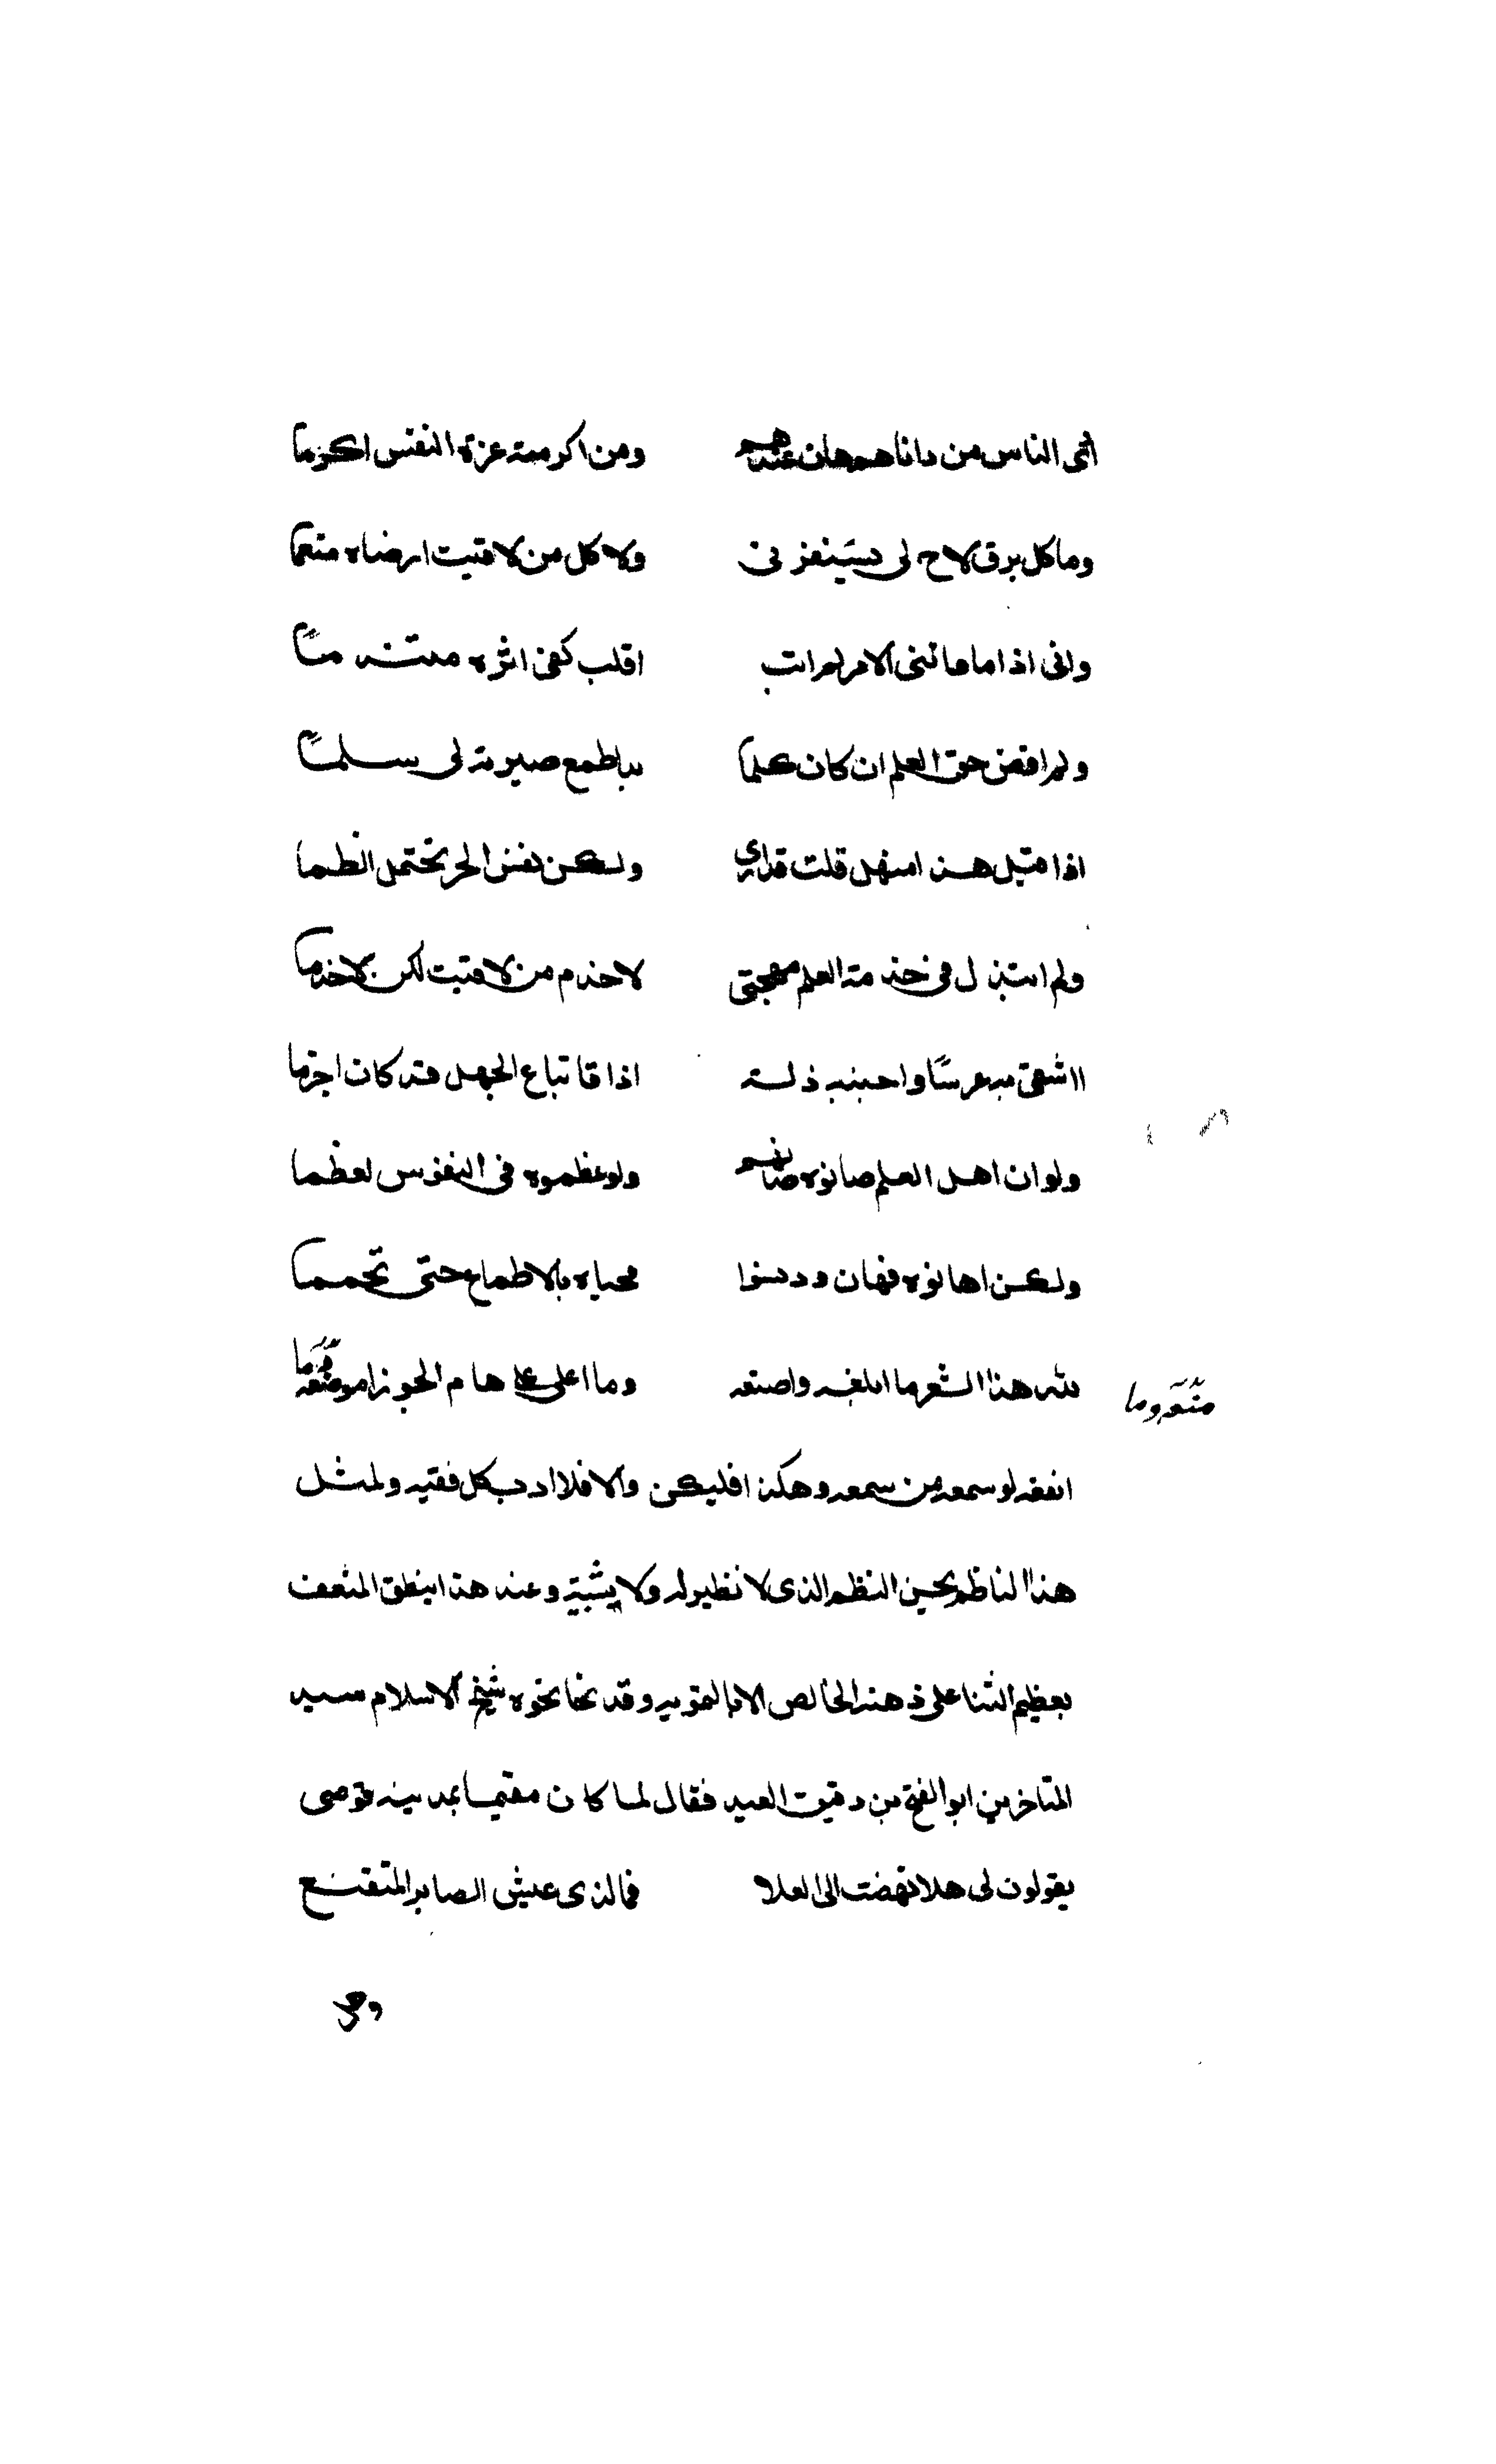 أرى الناس من داناهم هان عندهم ومن اكرمته عزة النفس اكرما
وما كل برق لاح لى يستفزنى ولا كل من لاقيت ارضاه منعما
وانى اذا ما فاتنى الامر لم ابت اقلب كفى اثره متندما
ولم اقض حق العلم ان كان كلما بدا طمع صيرته لى سلما
اذا قيل هذا منهل قلت قد ارى ولكن نفس الحر تحتمل الظما
ولم ابتذل فى خدمة العلم مهجتى لاخدم من لاقيت لكن لاخدما
ااشقى به غرسًا واجنيه ذلة اذا فاتباع الجهل قد كان احزما
ولو ان اهل العلم صانوه صانهم ولو عظموه فى النفوس لعظما
ولكن اهانوه فهان ودنسوا محياه بالاطماع حتى تجهما
لله هذا الشعر ما ابلغه واصنعه وما اعلى على هام الجوزا موضعه وما
انفعه لو سمعه من سمعه وهكذا فليكن والا فلا ادب كل فقيه ولمثل
هذا الناظم يحسن النظم الذى لا نظير له ولا شبيه وعند هذا ينطق المنصف
بعظيم الثنا على ذهنه الخالص لا بالتمويه وقد نحا نحوه شيخ الاسلام سيد
المتاخرين ابو الفتح بن دقيق العيد فقال لما كان مقيما بمدينة قوص
يقولون لى هلا نهضت الى العلا فما لذ عيش الصابر المتقنع